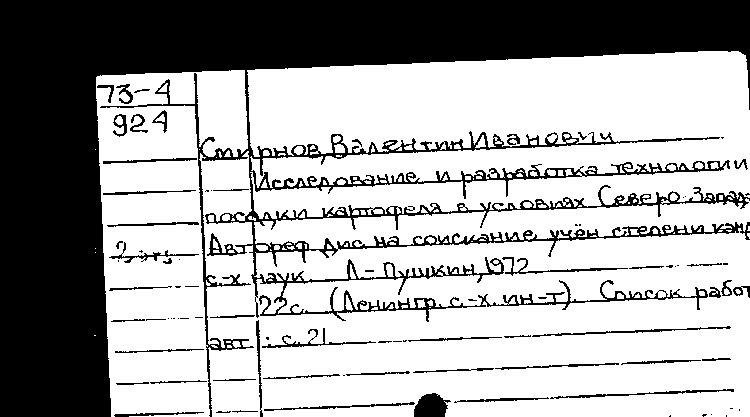 73-4
924
Смирнов, Валентин Иванович
Исследование и разработка технологии
посадки картофеля в условиях Северо-Запада
Автореф дис на соискание учён степени канд
с.-х. наук. Л-Пушкин, 1972
22с. (Ленингр. с.-х. ин-т). Список работ
авт.: с. 21.